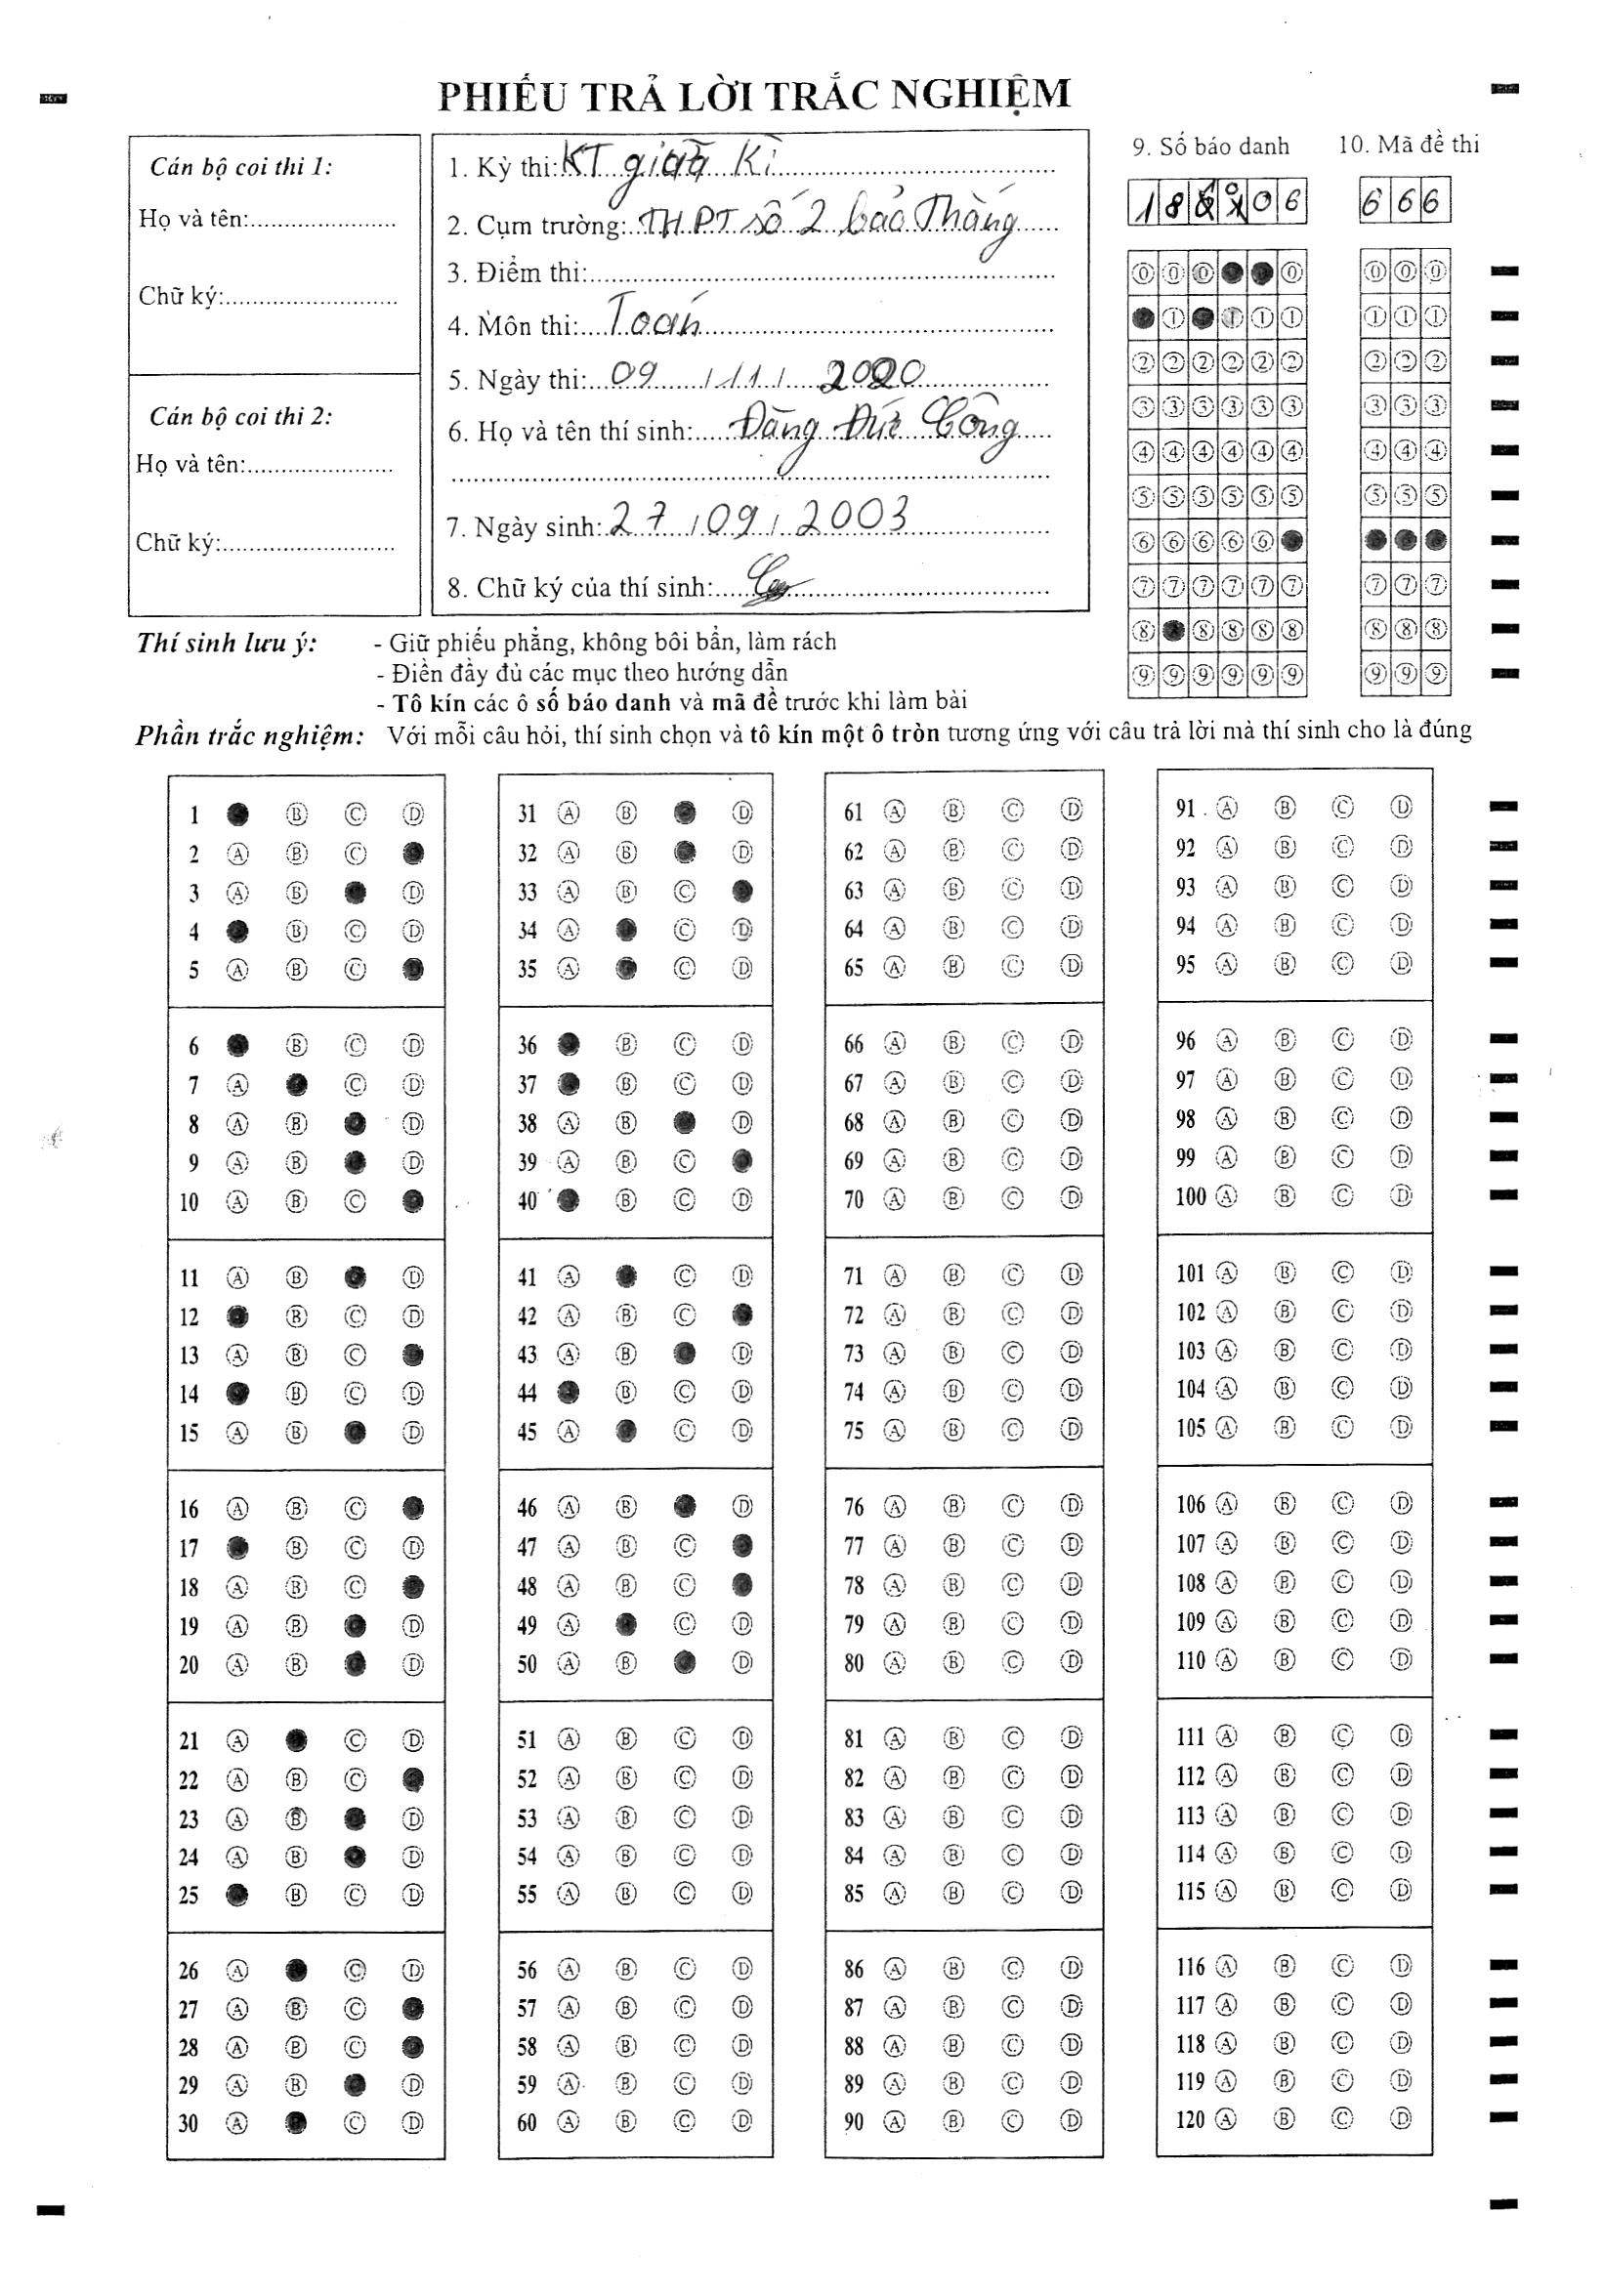 PHIẾU TRẢ LỜI TRẮC NGHIỆM
Cán bộ coi thi 1:
Họ và tên:
Chữ ký:
Cán bộ coi thi 2:
Họ và tên:
Chữ ký:
1. Kỳ thi: KT giữa Kì
2. Cụm trường: THPT số 2 bảo Thắng
3. Điểm thi:
4. Môn thi: Toán
5. Ngày thi: 09 / 11 / 2020
6. Họ và tên thí sinh: Đặng Đức Công
7. Ngày sinh: 27 / 09 / 2003
8. Chữ ký của thí sinh:
9. Số báo danh
1 8 0 6
10. Mã đề thi
6 6 6
0 0 0 0 0 0 0
1 1 1 1 1 1 1
2 2 2 2 2 2 2 2 2
3 3 3 3 3 3 3 3 3
4 4 4 4 4 4 4 4 4
5 5 5 5 5 5 5 5 5
6 6 6 6 6
7 7 7 7 7 7 7 7 7
8 8 8 8 8 8 8 8
9 9 9 9 9 9 9 9 9
Thí sinh lưu ý: - Giữ phiếu phẳng, không bôi bẩn, làm rách
- Điền đầy đủ các mục theo hướng dẫn
- Tô kín các ô số báo danh và mã đề trước khi làm bài
Phần trắc nghiệm: Với mỗi câu hỏi, thí sinh chọn và tô kín một ô tròn tương ứng với câu trả lời mà thí sinh cho là đúng
1 B C D
2 A B C
3 A B D
4 B C D
5 A B C
6 B C D
7 A C D
8 A B D
9 A B D
10 A B C
11 A B D
12 B C D
13 A B C
14 B C D
15 A B D
16 A B C
17 B C D
18 A B C
19 A B D
20 A B D
21 A C D
22 A B C
23 A B D
24 A B D
25 B C D
26 A C D
27 A B C
28 A B C
29 A B D
30 A C D
31 A B D
32 A B D
33 A B C
34 A C D
35 A C D
36 B C D
37 B C D
38 A B D
39 A B C
40 B C D
41 A C D
42 A B C
43 A B D
44 B C D
45 A C D
46 A B D
47 A B C
48 A B C
49 A C D
50 A B D
51 A B C D
52 A B C D
53 A B C D
54 A B C D
55 A B C D
56 A B C D
57 A B C D
58 A B C D
59 A B C D
60 A B C D
61 A B C D
62 A B C D
63 A B C D
64 A B C D
65 A B C D
66 A B C D
67 A B C D
68 A B C D
69 A B C D
70 A B C D
71 A B C D
72 A B C D
73 A B C D
74 A B C D
75 A B C D
76 A B C D
77 A B C D
78 A B C D
79 A B C D
80 A B C D
81 A B C D
82 A B C D
83 A B C D
84 A B C D
85 A B C D
86 A B C D
87 A B C D
88 A B C D
89 A B C D
90 A B C D
91 A B C D
92 A B C D
93 A B C D
94 A B C D
95 A B C D
96 A B C D
97 A B C D
98 A B C D
99 A B C D
100 A B C D
101 A B C D
102 A B C D
103 A B C D
104 A B C D
105 A B C D
106 A B C D
107 A B C D
108 A B C D
109 A B C D
110 A B C D
111 A B C D
112 A B C D
113 A B C D
114 A B C D
115 A B C D
116 A B C D
117 A B C D
118 A B C D
119 A B C D
120 A B C D